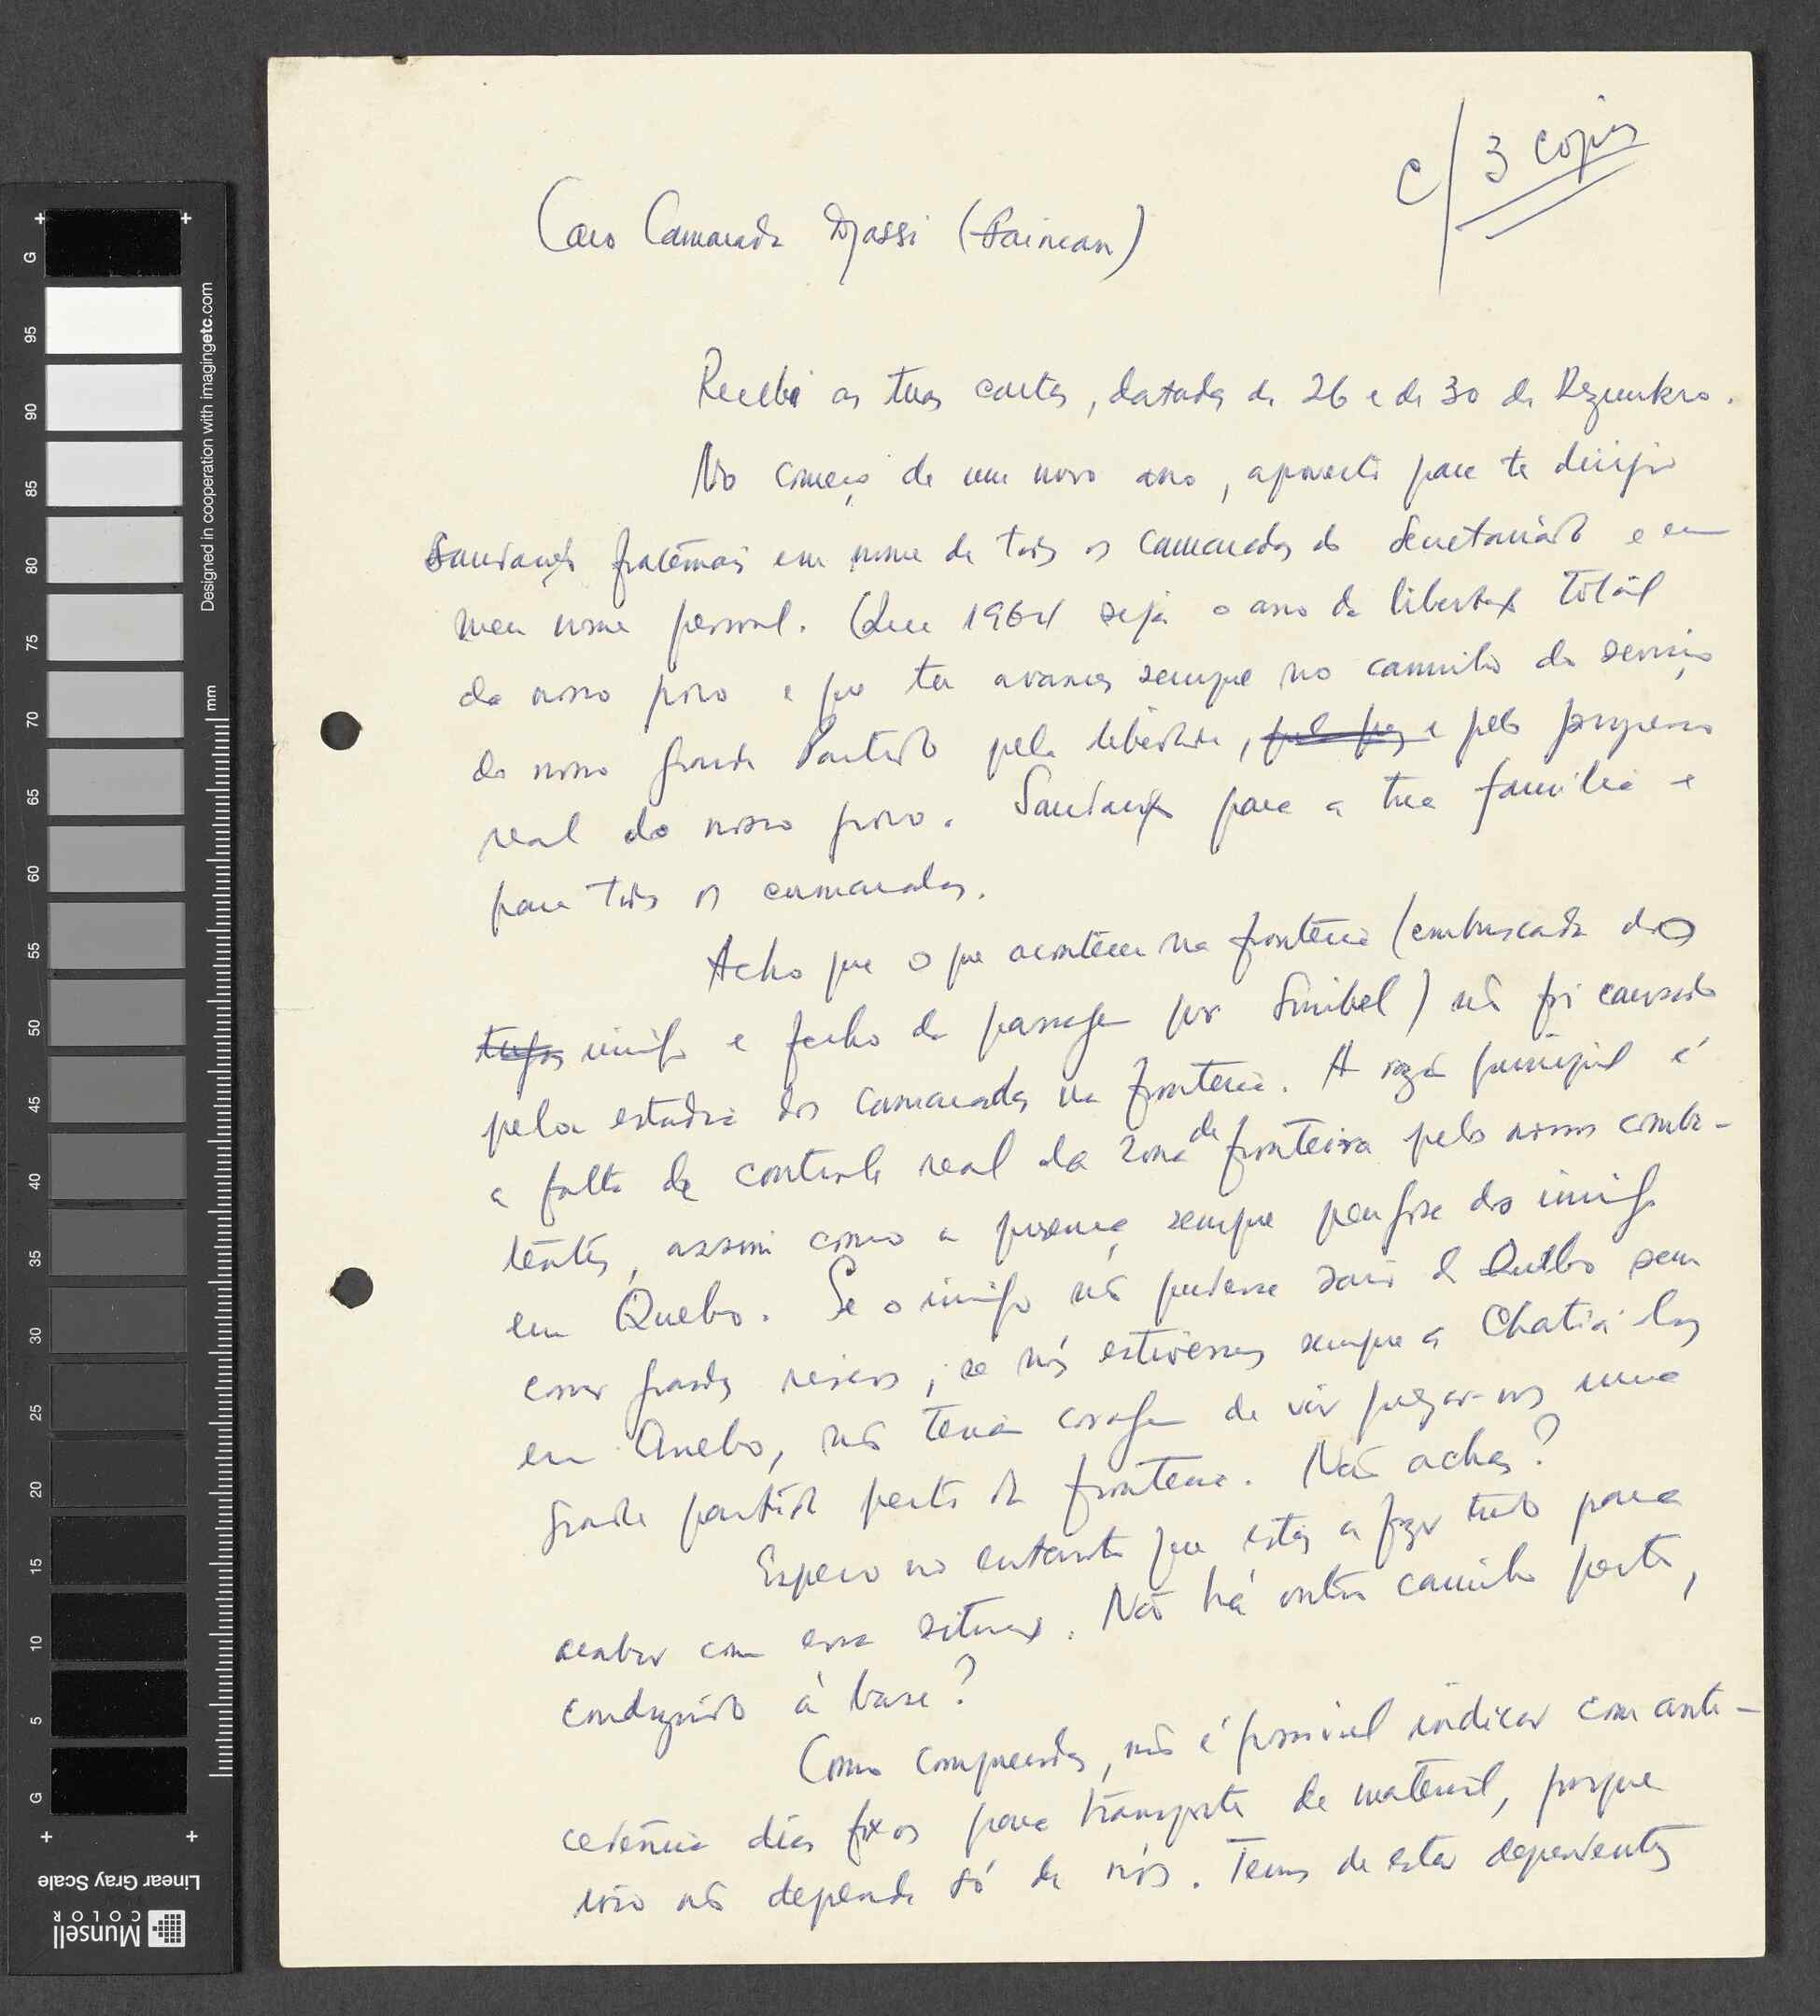 c/ 3 copias
Caro Camarada Djassi (Faincam)
Recebi as tuas cartas, datadas de 26 e de 30 de Dezembro.
No começo de um novo ano, aproveito para te dirigir
saudações fraternais em nome de todos os camaradas do Secretariado e em
meu nome pessoal. Que 1964 seja o ano da libertação total
do nosso povo e que tu avances sempre no caminho do serviço
do nosso grande Partido pela liberdade, pela paz e pelo progresso
real do nosso povo. Saudações para a tua família e
para todos os camaradas.
Acho que o que aconteceu na fronteira (embuscada do
tugas inimigo e fecho da passagem por Simbel) não foi causado
pela estadia dos camaradas na fronteira. A razão principal é
a falta de controle real da zona de fronteira pelos nossos comba-
tentes, assim como a presença sempre do inimigo
em Quebo. Se o inimigo não pudesse sair de Quebo sem
correr grandes riscos, se nós estivéssemos sempre a chatiá-los
em Quebo, não teria coragem de vir pregar-nos uma
grande partida perto da fronteira. Não achas?
Espero no entanto que estás a fazer tudo para
acabar com essa situação. Não há outro caminho perto,
conduzindo à base?
Como compreendes, não é possível indicar com ante-
cedência dias fixos para transporte de material, porque
isso não depende só de nós. Temos de estar dependentes